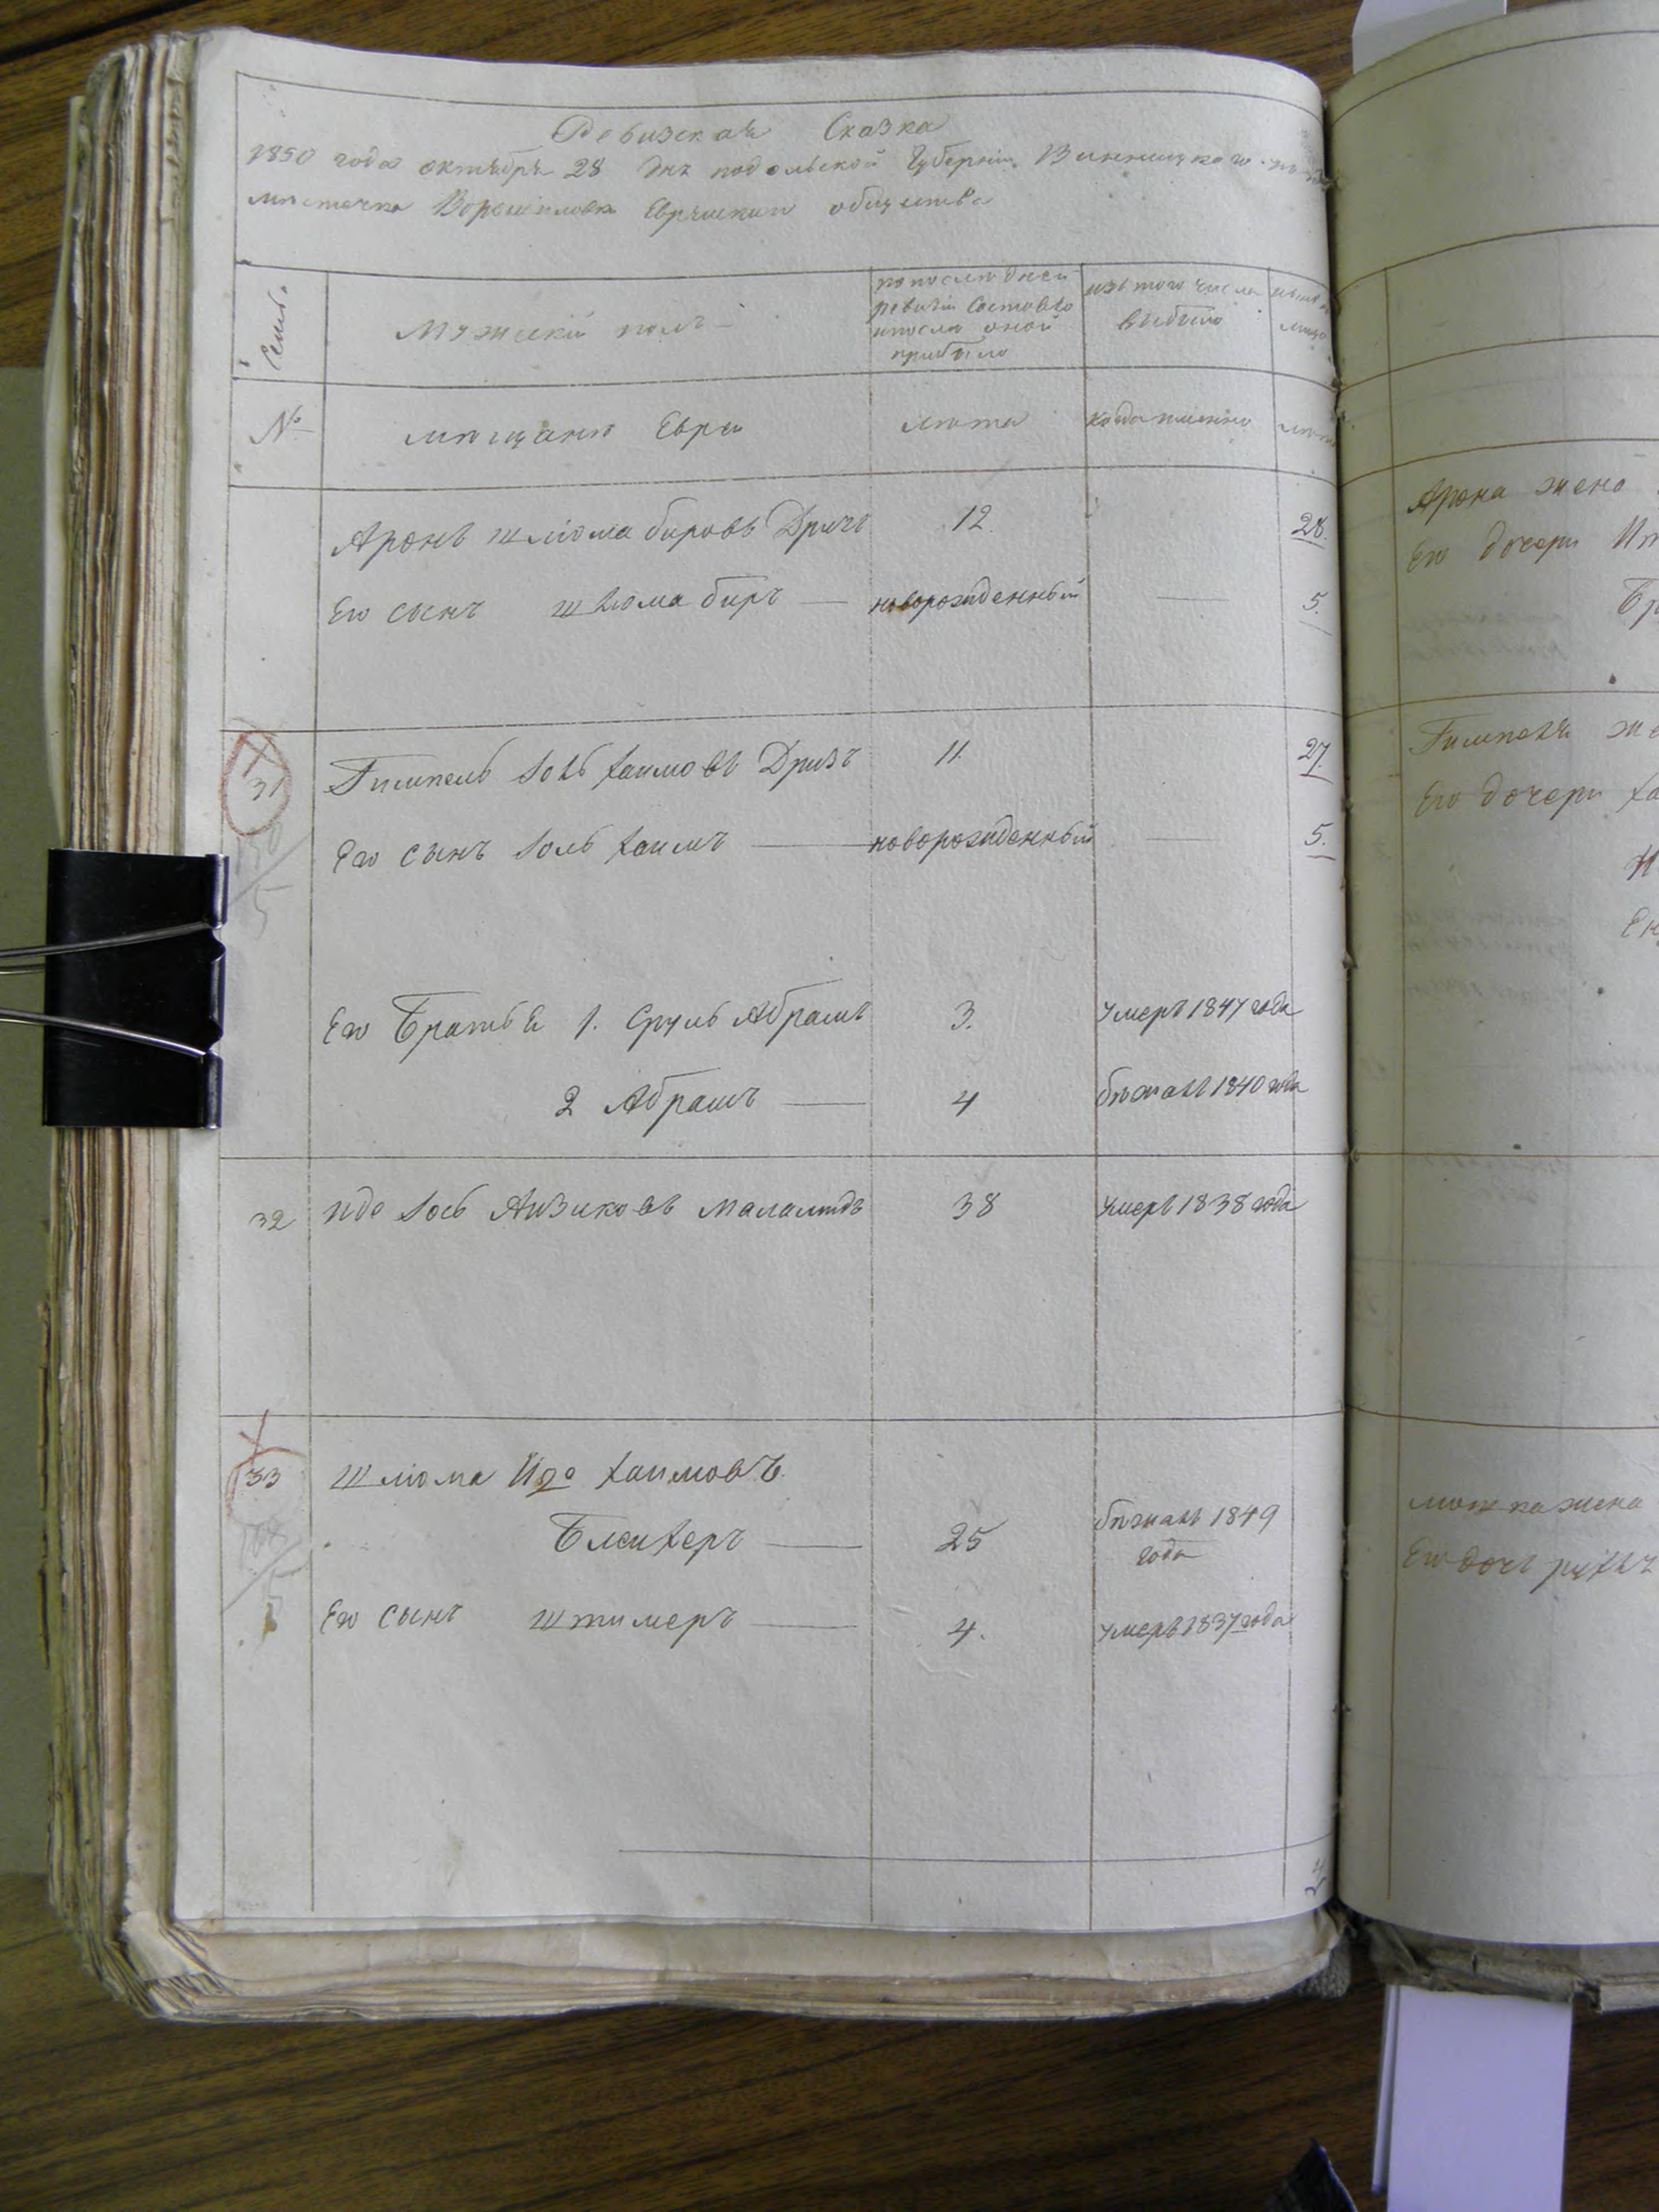 Ревизская Сказка
1850 года октября 28 дня подольской Губерніи Винницкого
мистечка Ворошиловки Еврейскии общества
Семьи
Мужескій полъ
по последней
ревизіи состояло
и после оной
прибыло
изъ того числа
выбыло
№
мещане Евреи
лета
когда именно
лета
Аронъ Шліома Беровъ Дризъ 12. 28.
Его сынъ Шлома Беръ — новорожденный — 5.
31 Гимпель Іось Хаимовъ Дризъ 11. 27.
Его сынъ Іось Хаимъ — новорожденный — 5.
Его Братья 1. Сруль Абрамъ 3. умеръ 1847 года
2 Абрамъ — 4 бежалъ 1840 года
32 Идо Іось Аизиковъ Маламудъ 38 умеръ 1838 года
33 Шліома Идо Хаимовъ
Блехеръ — 25 бежалъ 1849
года
Его сынъ Штимеръ — 4. умеръ 1837 года
Арона жена
Его дочери
Гимпеля
Его дочери
жена
Его дочь